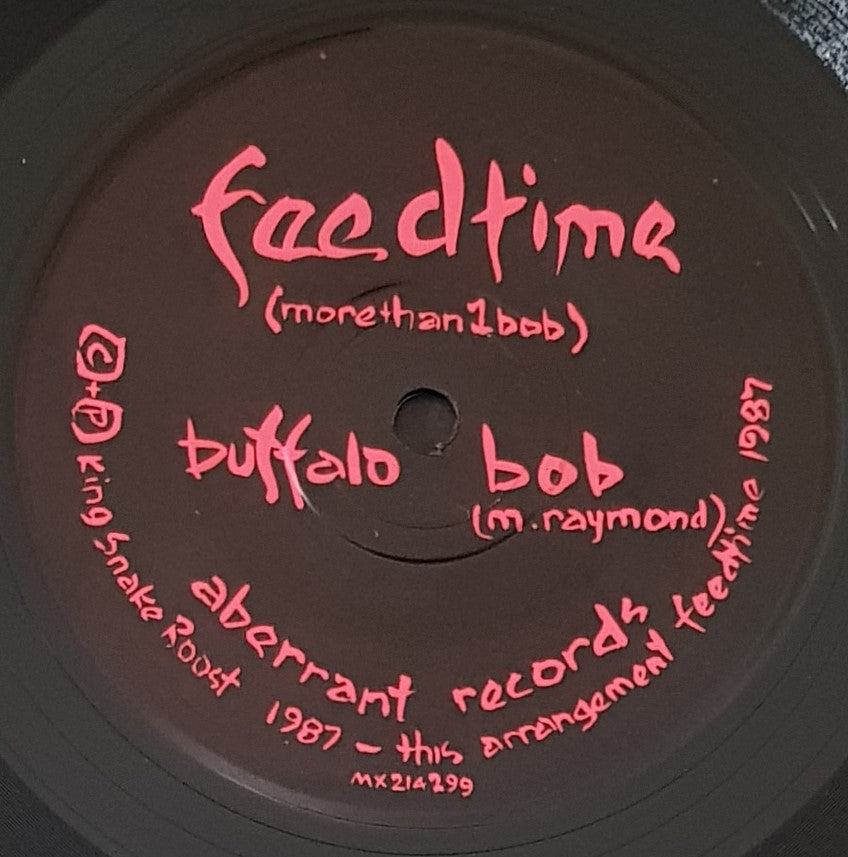 feedtime
(morethan1bob)
buffalo bob
(m.raymond)
aberrant records
C+P King Snake Roost 1987 - this arrangement feedtime 1987
MX214299